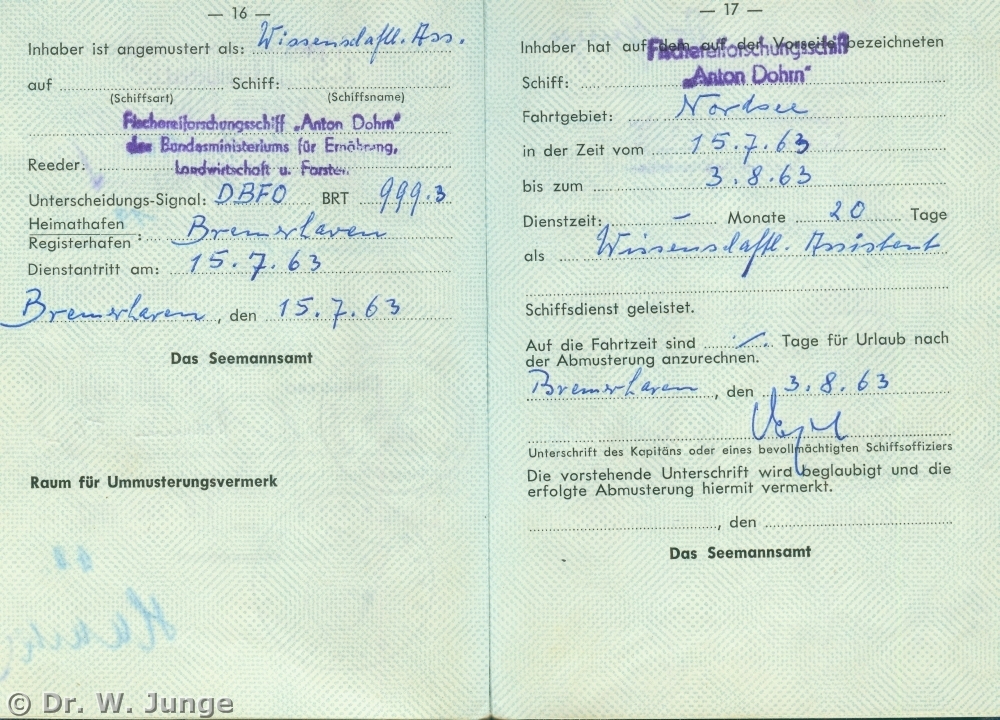 — 16 —
Inhaber ist angemustert als: Wissenschaftl. Ass.
auf Schiff:
(Schiffsart) (Schiffsname)
Fischereiforschungsschiff „Anton Dohrn"
des Bundesministeriums für Ernährung,
Reeder: Landwirtschaft u. Forsten
Unterscheidungs-Signal: DBFO BRT 999.3
Heimathafen
Registerhafen : Bremerhaven
Dienstantritt am: 15.7.63
Bremerhaven, den 15.7.63
Das Seemannsamt
Raum für Ummusterungsvermerk
— 17 —
Inhaber hat auf dem auf der Vorseite bezeichneten
Fischereiforschungsschiff
Schiff: „Anton Dohrn"
Fahrtgebiet: Nordsee
in der Zeit vom 15.7.63
bis zum 3.8.63
Dienstzeit: – Monate 20 Tage
als Wissenschaftl. Assistent
Schiffsdienst geleistet.
Auf die Fahrtzeit sind Tage für Urlaub nach
der Abmusterung anzurechnen.
Bremerhaven, den 3.8.63
Unterschrift des Kapitäns oder eines bevollmächtigten Schiffsoffiziers
Die vorstehende Unterschrift wird beglaubigt und die
erfolgte Abmusterung hiermit vermerkt.
, den
Das Seemannsamt
© Dr. W. Junge